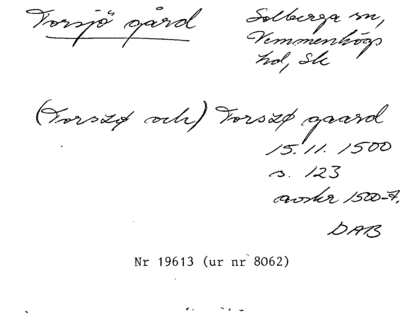 Torsjö gård
Solberga sn,
Vemmenhögs
hd, Sk
(Torszø och) Torszø gaard
15.11. 1500
s. 123
avskr 1500-t.
DAB
Nr 19613 (ur nr 8062)